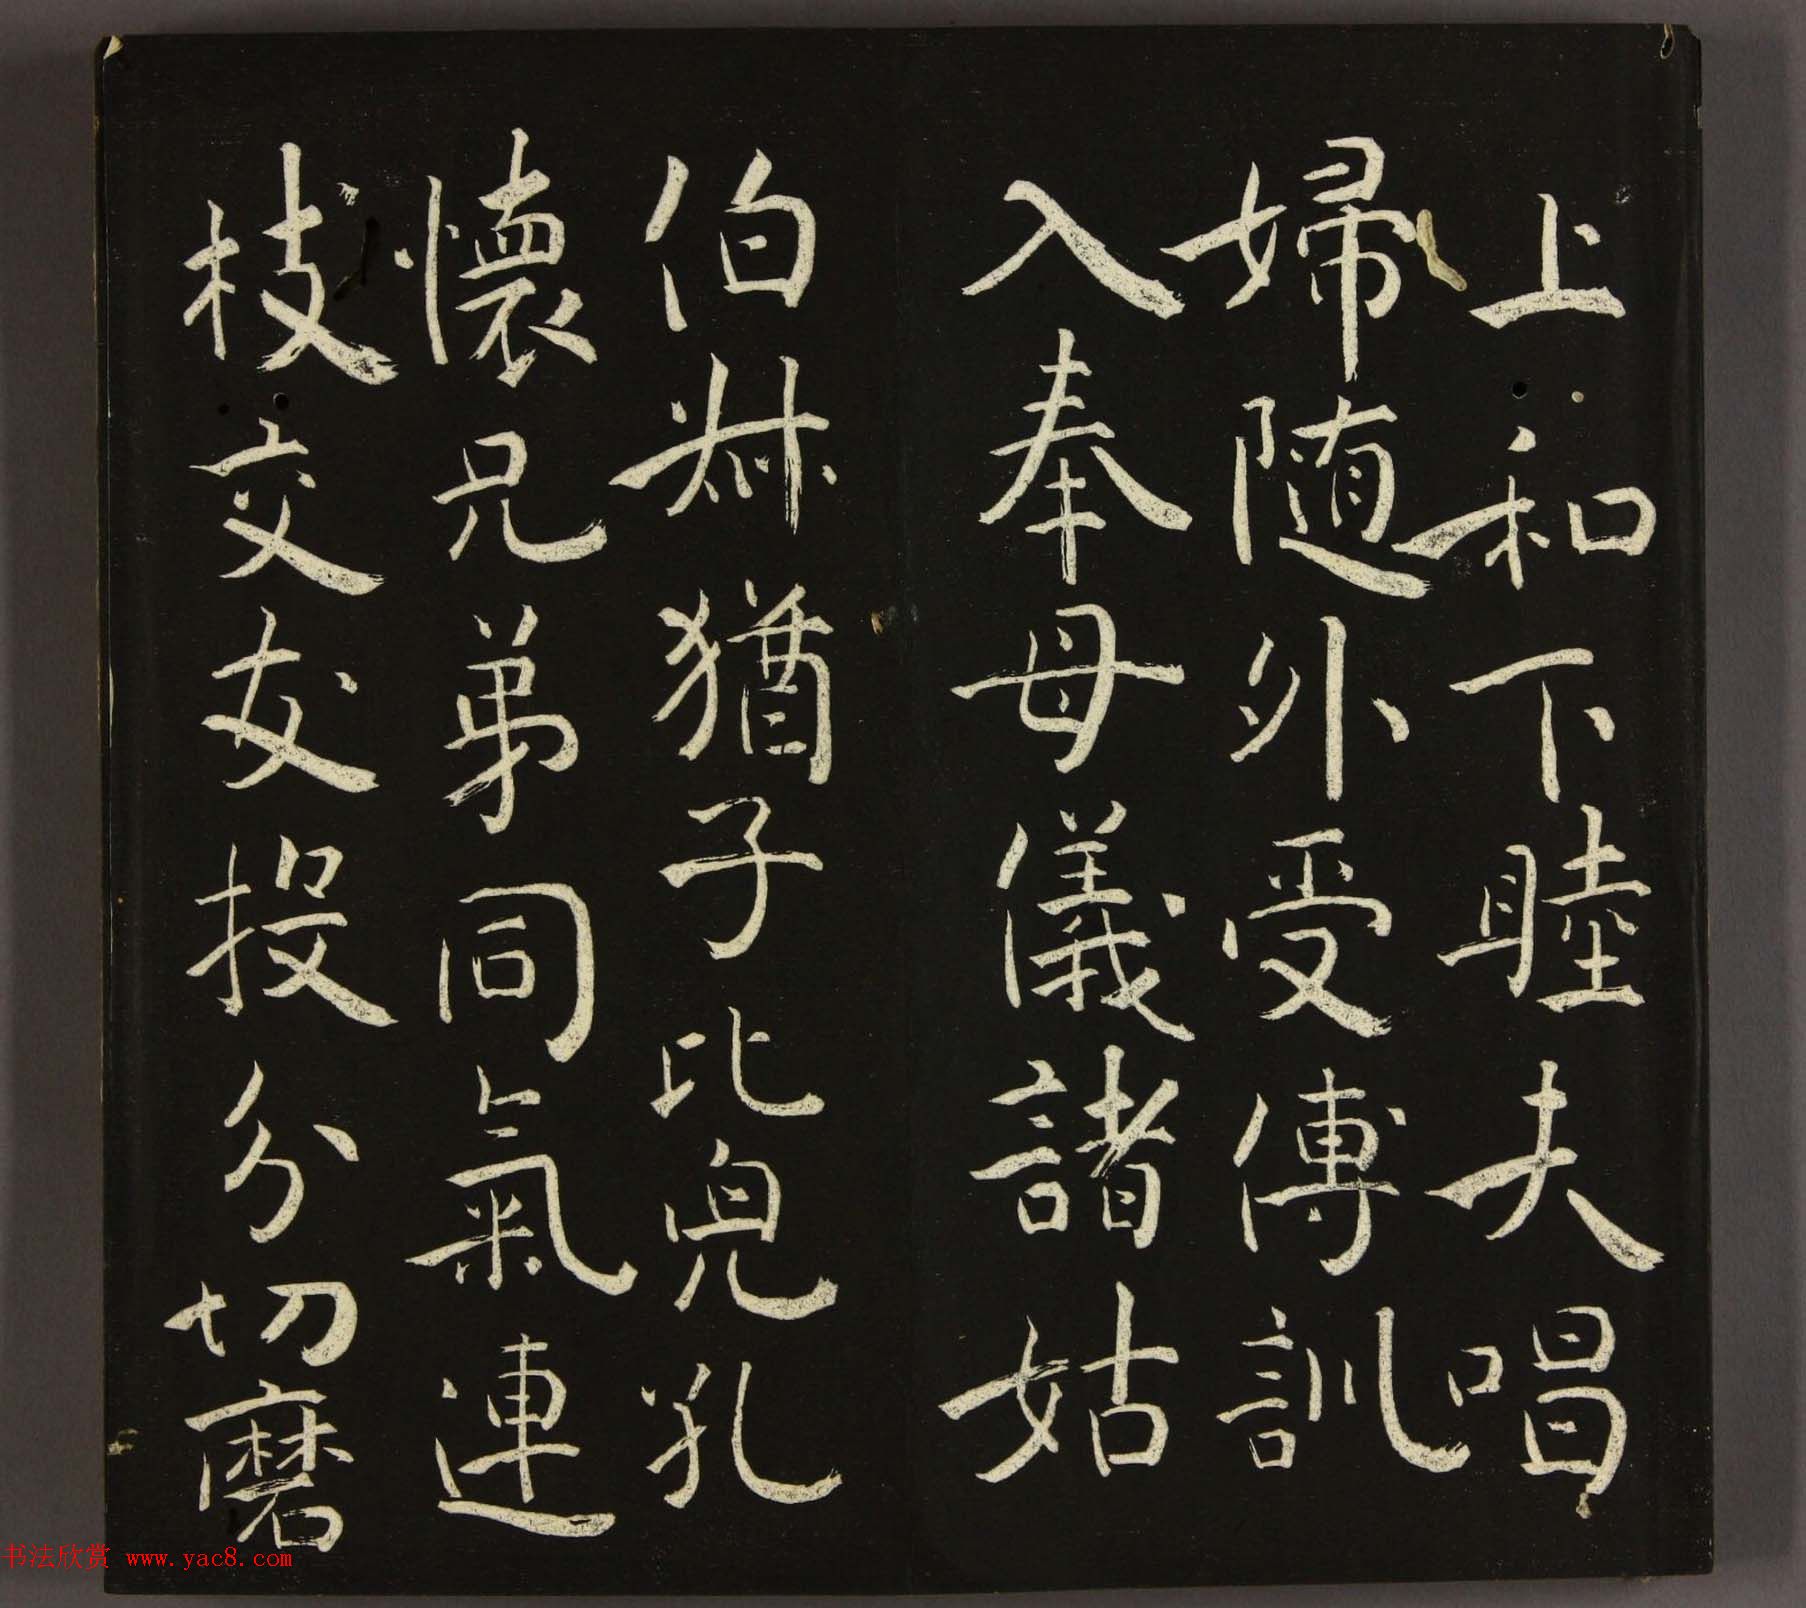 上和下睦夫唱
婦隨外受傅訓
入奉母儀諸姑
伯叔猶子比兒孔
懷兄弟同氣連
枝交友投分切磨
书法欣赏 www.yac8.com